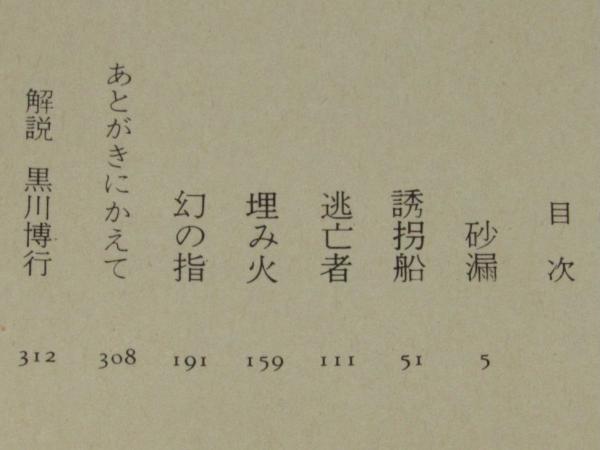 目次
砂漏 5
誘拐船 51
逃亡者 111
埋み火 159
幻の指 191
あとがきにかえて 308
解説 黒川博行 312